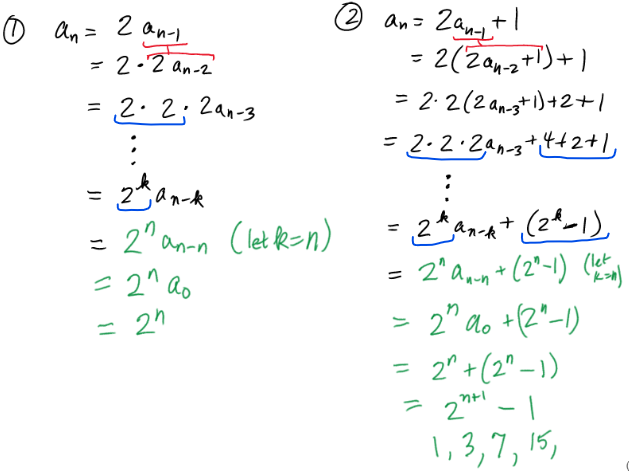 ① aₙ = 2 aₙ₋₁
= 2 · 2 aₙ₋₂
= 2 · 2 · 2aₙ₋₃
⋮
= 2ᵏ aₙ₋ₖ
= 2ⁿ aₙ₋ₙ (let k=n)
= 2ⁿ a₀
= 2ⁿ
② aₙ = 2aₙ₋₁ + 1
= 2(2aₙ₋₂+1)+1
= 2·2(2aₙ₋₃+1)+2+1
= 2·2·2aₙ₋₃+4+2+1
⋮
= 2ᵏaₙ₋ₖ+ (2ᵏ-1)
= 2ⁿ aₙ₋ₙ +(2ⁿ-1) (let k=n)
= 2ⁿ a₀ +(2ⁿ-1)
= 2ⁿ +(2ⁿ -1)
= 2ⁿ⁺¹ - 1
1, 3, 7, 15,